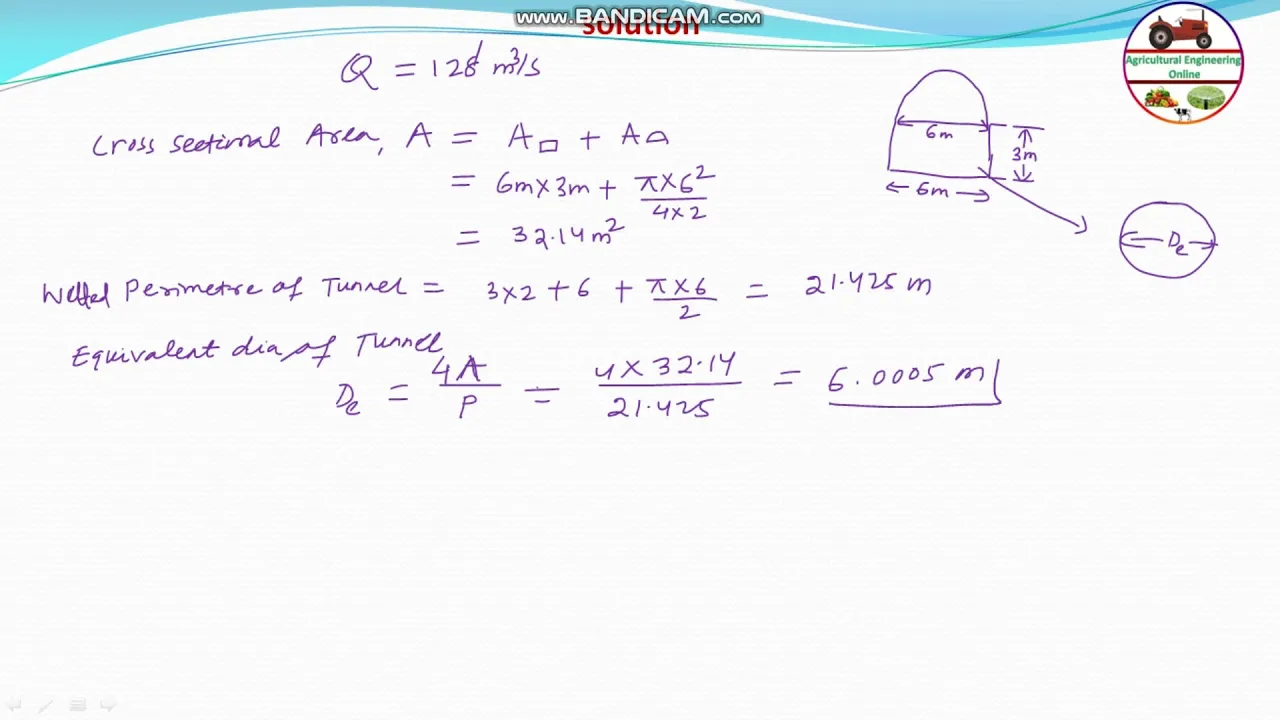 www.BANDICAM.com
solution
Q = 128 m³/s
Agricultural Engineering
Online
Cross sectional Area, A = A□ + A⌓
= 6m×3m + π×6²/4×2
= 32.14m²
6m
3m
6m
De
Wetted Perimetre of Tunnel = 3×2 + 6 + π×6/2 = 21.425 m
Equivalent dia of Tunnel
De = 4A/P = 4×32.14/21.425 = 6.0005 m